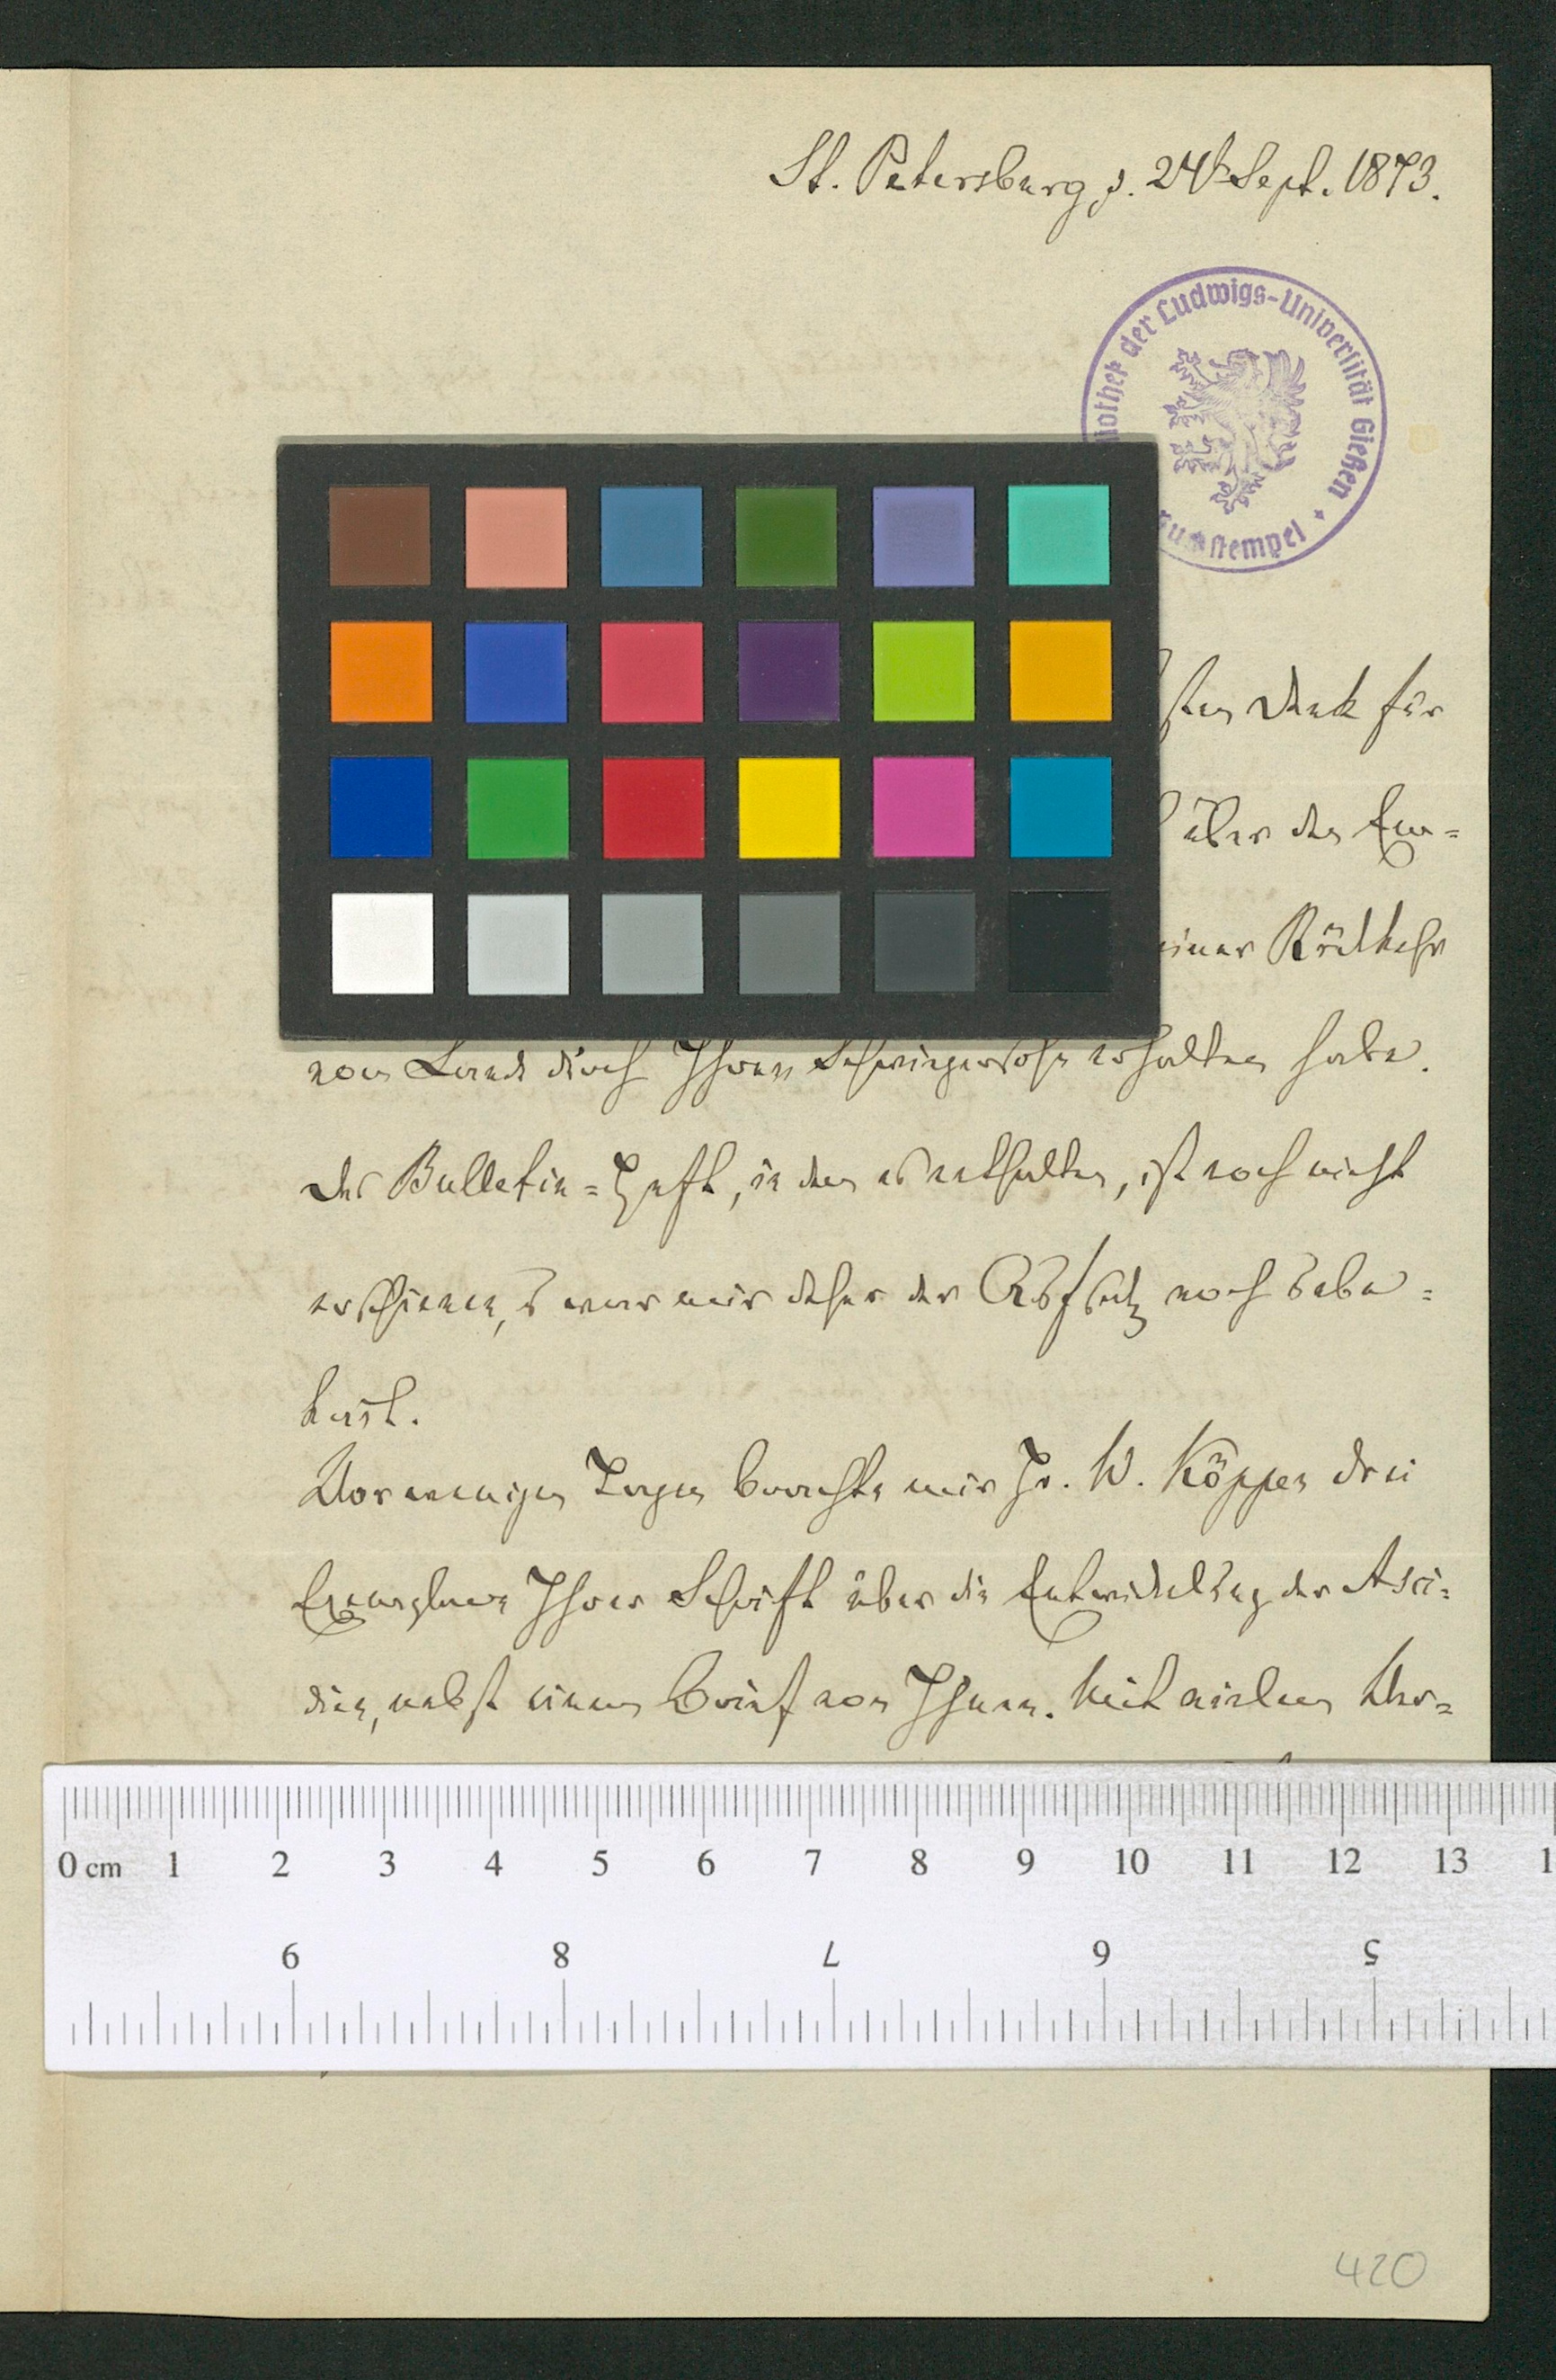 St. Petersburg d. 24t Sept. 1873.
iothek der Ludwigs-Universität Gießen
stempel
sten Dank für
über den Em=
einer Rückkehr
vom Lande durch Ihren Schwiegersohn erhalten habe.
Das Bulletin=Heft, in dem es enthalten, ist noch nicht
erschienen, es war mir daher der Aufsatz noch unbe=
kannt.
Vor wenigen Tagen brachte mir Hr. W. Köppen drei
Exemplare Ihrer Schrift über die Entwickelung der Asci=
dien, nebst einem Brief von Ihnen. Mit vielem Ver=
0 cm 1 2 3 4 5 6 7 8 9 10 11 12 13 1
9 8 7 6 5
420